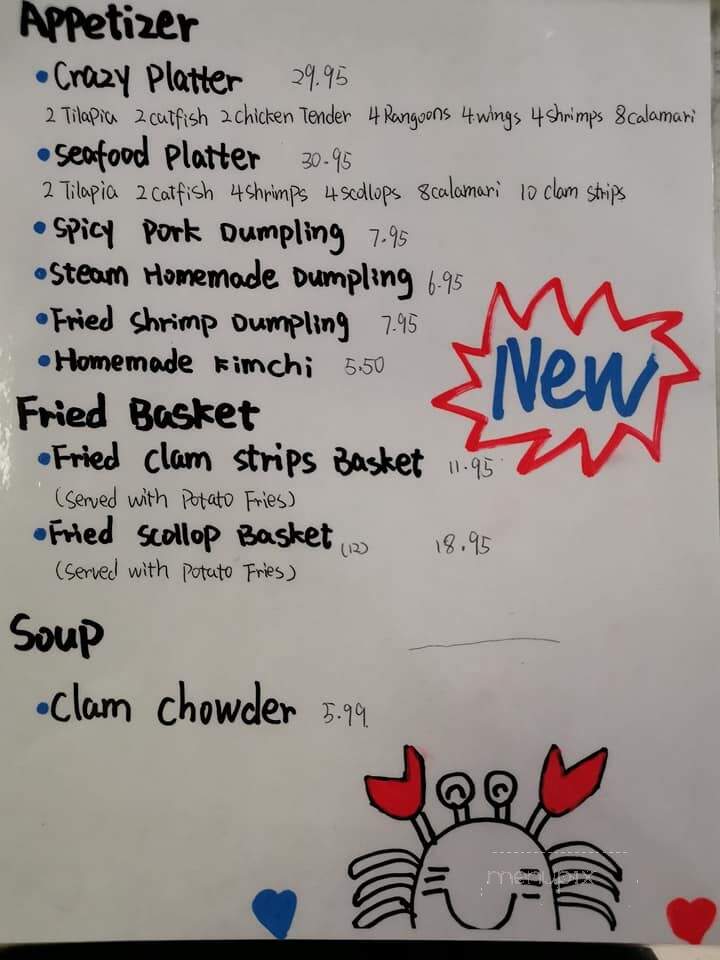 Appetizer
• Crazy Platter 29.95
2 Tilapia 2 catfish 2 chicken Tender 4 Rangoons 4 wings 4 shrimps 8 calamari
• Seafood Platter 30.95
2 Tilapia 2 catfish 4 shrimps 4 scollops 8 calamari 10 clam strips
• Spicy Pork Dumpling 7.95
• Steam Homemade Dumpling 6.95
• Fried Shrimp Dumpling 7.95
• Homemade Kimchi 5.50
New
Fried Basket
• Fried Clam Strips Basket 11.95
(Served with Potato Fries)
• Fried Scollop Basket (12) 18.95
(Served with Potato Fries)
Soup
• Clam Chowder 5.99
menupix